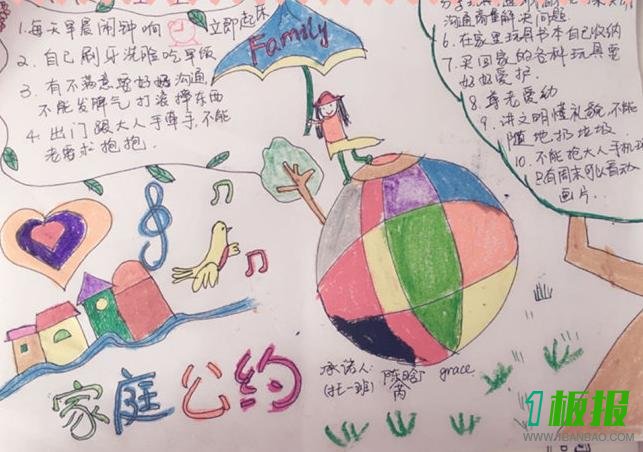 1.每天早晨闹钟响 立即起床
2. 自己刷牙洗脸吃早饭
3. 有不满意要好好沟通
不能发脾气打滚摔东西
4. 出门跟大人手牵手,不能
老要求抱抱.
Family
沟通商量解决问题.
6.在家里玩具书本自己收纳
7.买回家的各种玩具要
好好爱护.
8.尊老爱幼
9. 讲文明懂礼貌不能
随地扔垃圾.
10. 不能抢大人手机
只有周末可以看动
画片.
家庭公约
承诺人: 陈晗芮 grace
(托一班)
1板报
WWW.1BANBAO.COM